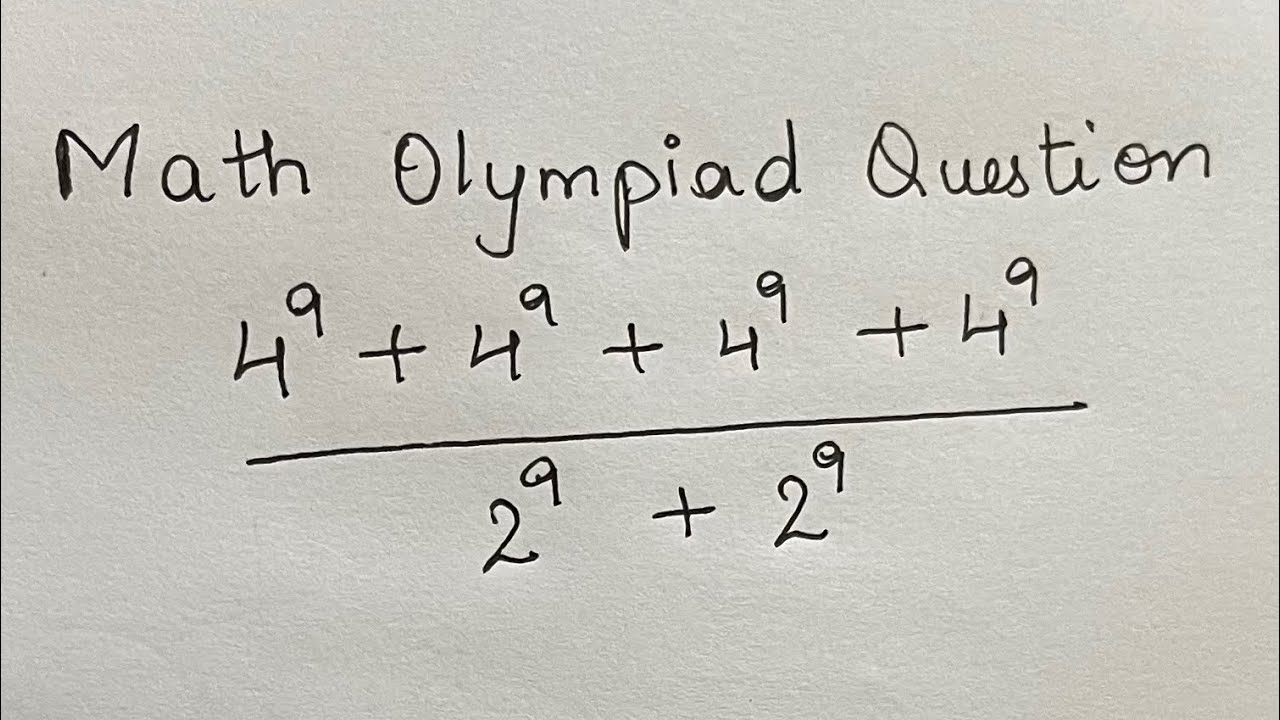 Math Olympiad Question
4⁹ + 4⁹ + 4⁹ + 4⁹
2⁹ + 2⁹